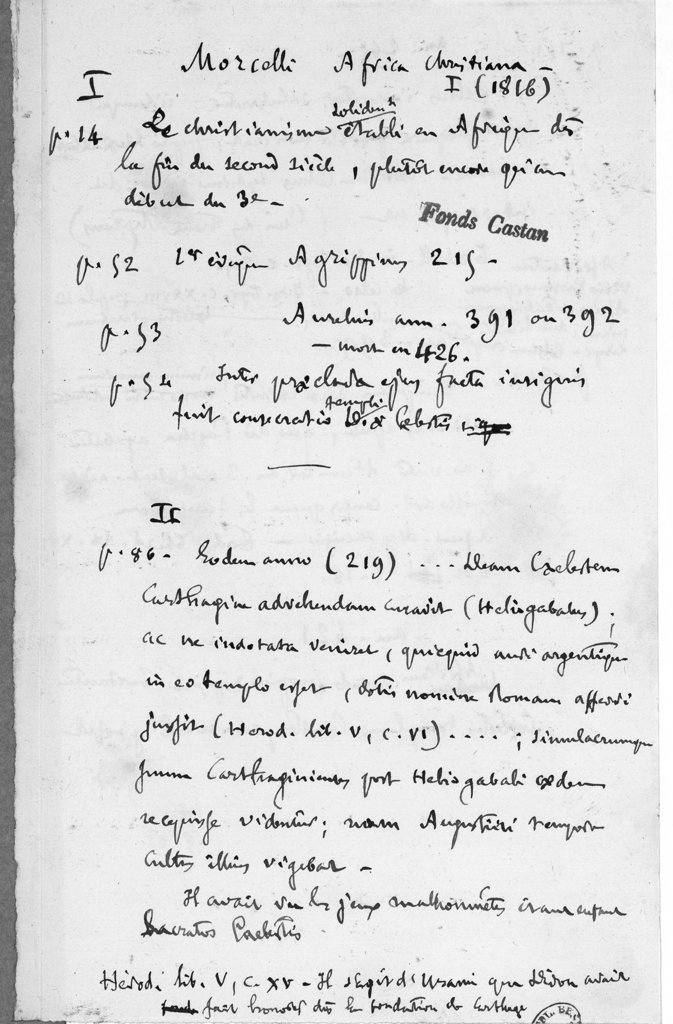 Morcelli Africa Christiana –
I I (1816)
solidemt
p. 14 Le christianisme établi en Afrique dès
la fin du second siècle, plutôt encore qu'au
début du 3e –
Fonds Castan
p. 52 1er évêque Agrippinus 215 –
p. 53 Aurelius ann. 391 ou 392
– mort en 426.
p. 54 Inter præclara ejus facta insignis
templi
fuit consecratio Deæ Cælestis
II
p. 86 – Eodem anno (219) ... Deam Cælestem
Carthagine advehendam curavit (Heliogabalus) ;
ac ne indotata veniret, quicquid auri argentique
in eo templo esset, dotis nomine Romam afferri
jussit (Herod. lib. V, c. VI) .... ; simulacrumque
suum Carthaginienses post Heliogabali cædem
recepisse videntur ; nam Augustini tempore
cultus illius vigebat –
Il avait vu les jeux malhonnêtes étant enfant
Sacratos Cælestis
Hérod. lib. V, c. XV – Il s'agit d'Urani que Didon avait
fait honorer dès la fondation de Carthage